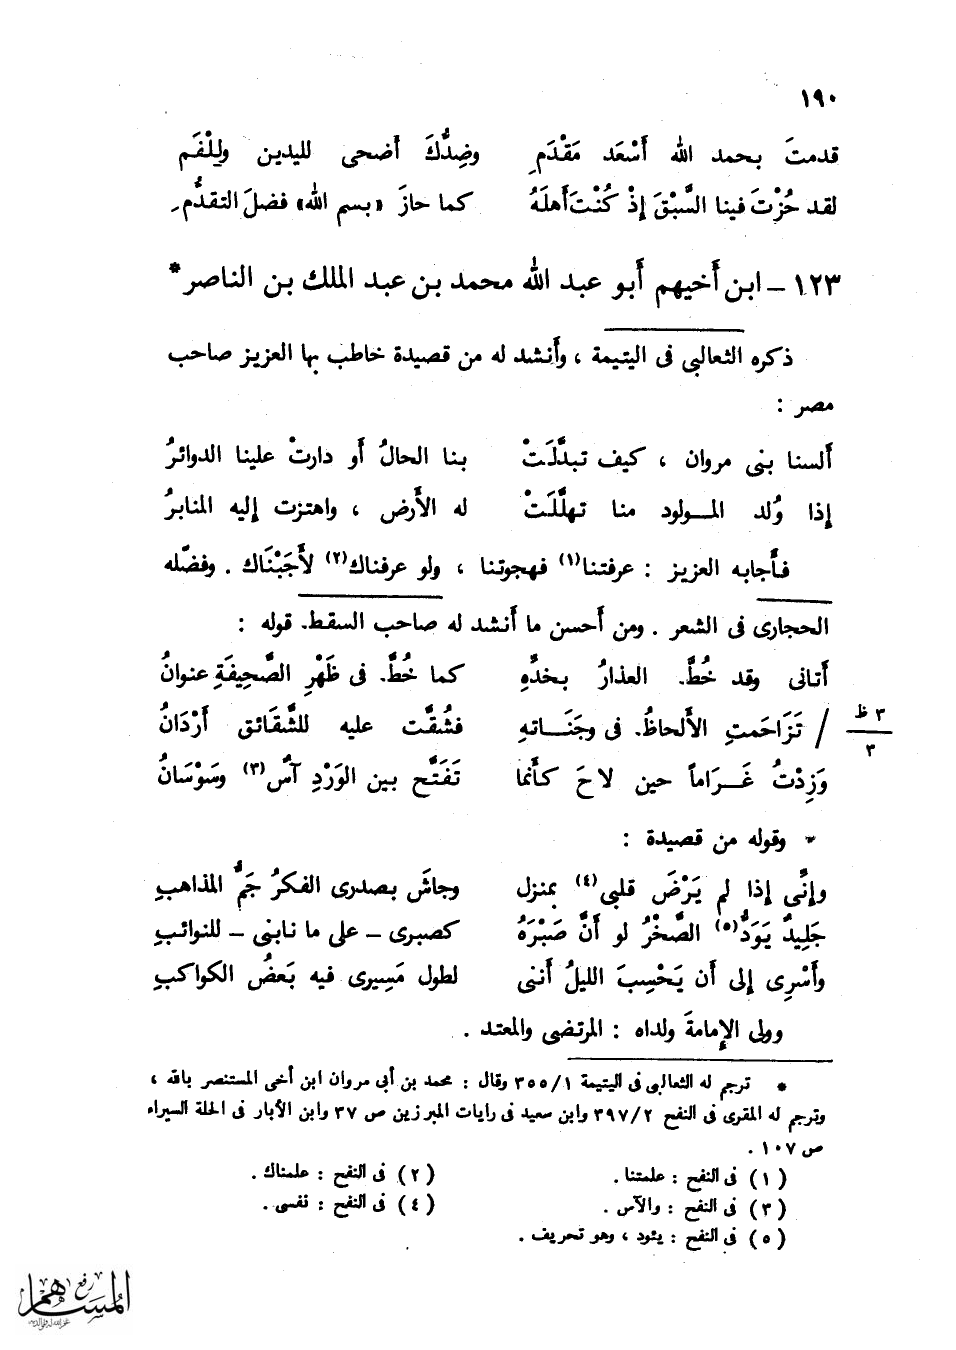 ١٩٠
قدمتَ بحمد الله أَسْعَد مَقْدَمِ وضِدُّكَ أَضحى لليدين ولِلْفَم
لقد حُزْتَ فينا السَّبْقَ إِذْ كُنْتَ أَهلَهُ كما حازَ «بسم الله» فضلَ التقدُّمِ
١٢٣ – ابن أَخيهم أَبو عبد الله محمد بن عبد الملك بن الناصر *
ذكره الثعالبى فى اليتيمة ، وأَنشد له من قصيدة خاطب بها العزيز صاحب
مصر :
أَلسنا بنى مروان ، كيف تبدَّلَتْ بنا الحالُ أَو دارتْ علينا الدوائرُ
إِذا وُلد المـولود منا تهلَّلَتْ له الأَرض ، واهتزت إليه المنابرُ
فأَجابه العزيز : عرفتنا(١) فهجوتنا ، ولو عرفناك(٢) لأَجَبْناك . وفضّله
الحجارى فى الشعر . ومن أَحسن ما أَنشد له صاحب السقط قوله :
أَتانى وقد خُطَّ العذارُ بخدِّهِ كما خُطَّ فى ظَهْرِ الصَّحِيفَةِ عنوانُ
٣ ظ
/ تَزَاحَمتِ الأَلحاظُ فى وجَنَـاتهِ فشُقَّت عليه للشَّقائق أَرْدَانُ
٣
وَزِدْتُ غَـرَاماً حين لاحَ كأَنما تَفَتَّح بين الوَرْدِ آسٌ(٣) وسَوْسَانُ
وقوله من قصيدة :
وإِنَّى إِذا لم يَرْضَ قلبى(٤) بمنزل وجاشَ بصدرى الفكرُ جَمُّ المذاهبِ
جَلِيدٌ يَوَدُّ(٥) الصَّخْرُ لو أَنَّ صَبْرَهُ كصبرى – على ما نابنى – للنوائبِ
وأَسْرِى إلى أَن يَحْسِبَ الليلُ أَننى لطول مَسِيرى فيه بَعضُ الكواكبِ
وولى الإِمامةَ ولداه : المرتضى والمعتد .
* ترجم له الثعالبى فى اليتيمة ١/٣٥٥ وقال : محمد بن أبى مروان ابن أخى المستنصر بالله ،
وترجم له المقرى فى النفح ٢/٣٩٧ وابن سعيد فى رايات المبرزين ص ٣٧ وابن الأبار فى الحلة السيراء
ص ١٠٧ .
(١) فى النفح : علمتنا . (٢) فى النفح : علمناك .
(٣) فى النفح : والآس . (٤) فى النفح : نفسى .
(٥) فى النفح : يئود ، وهو تحريف .
رفع
المساهم